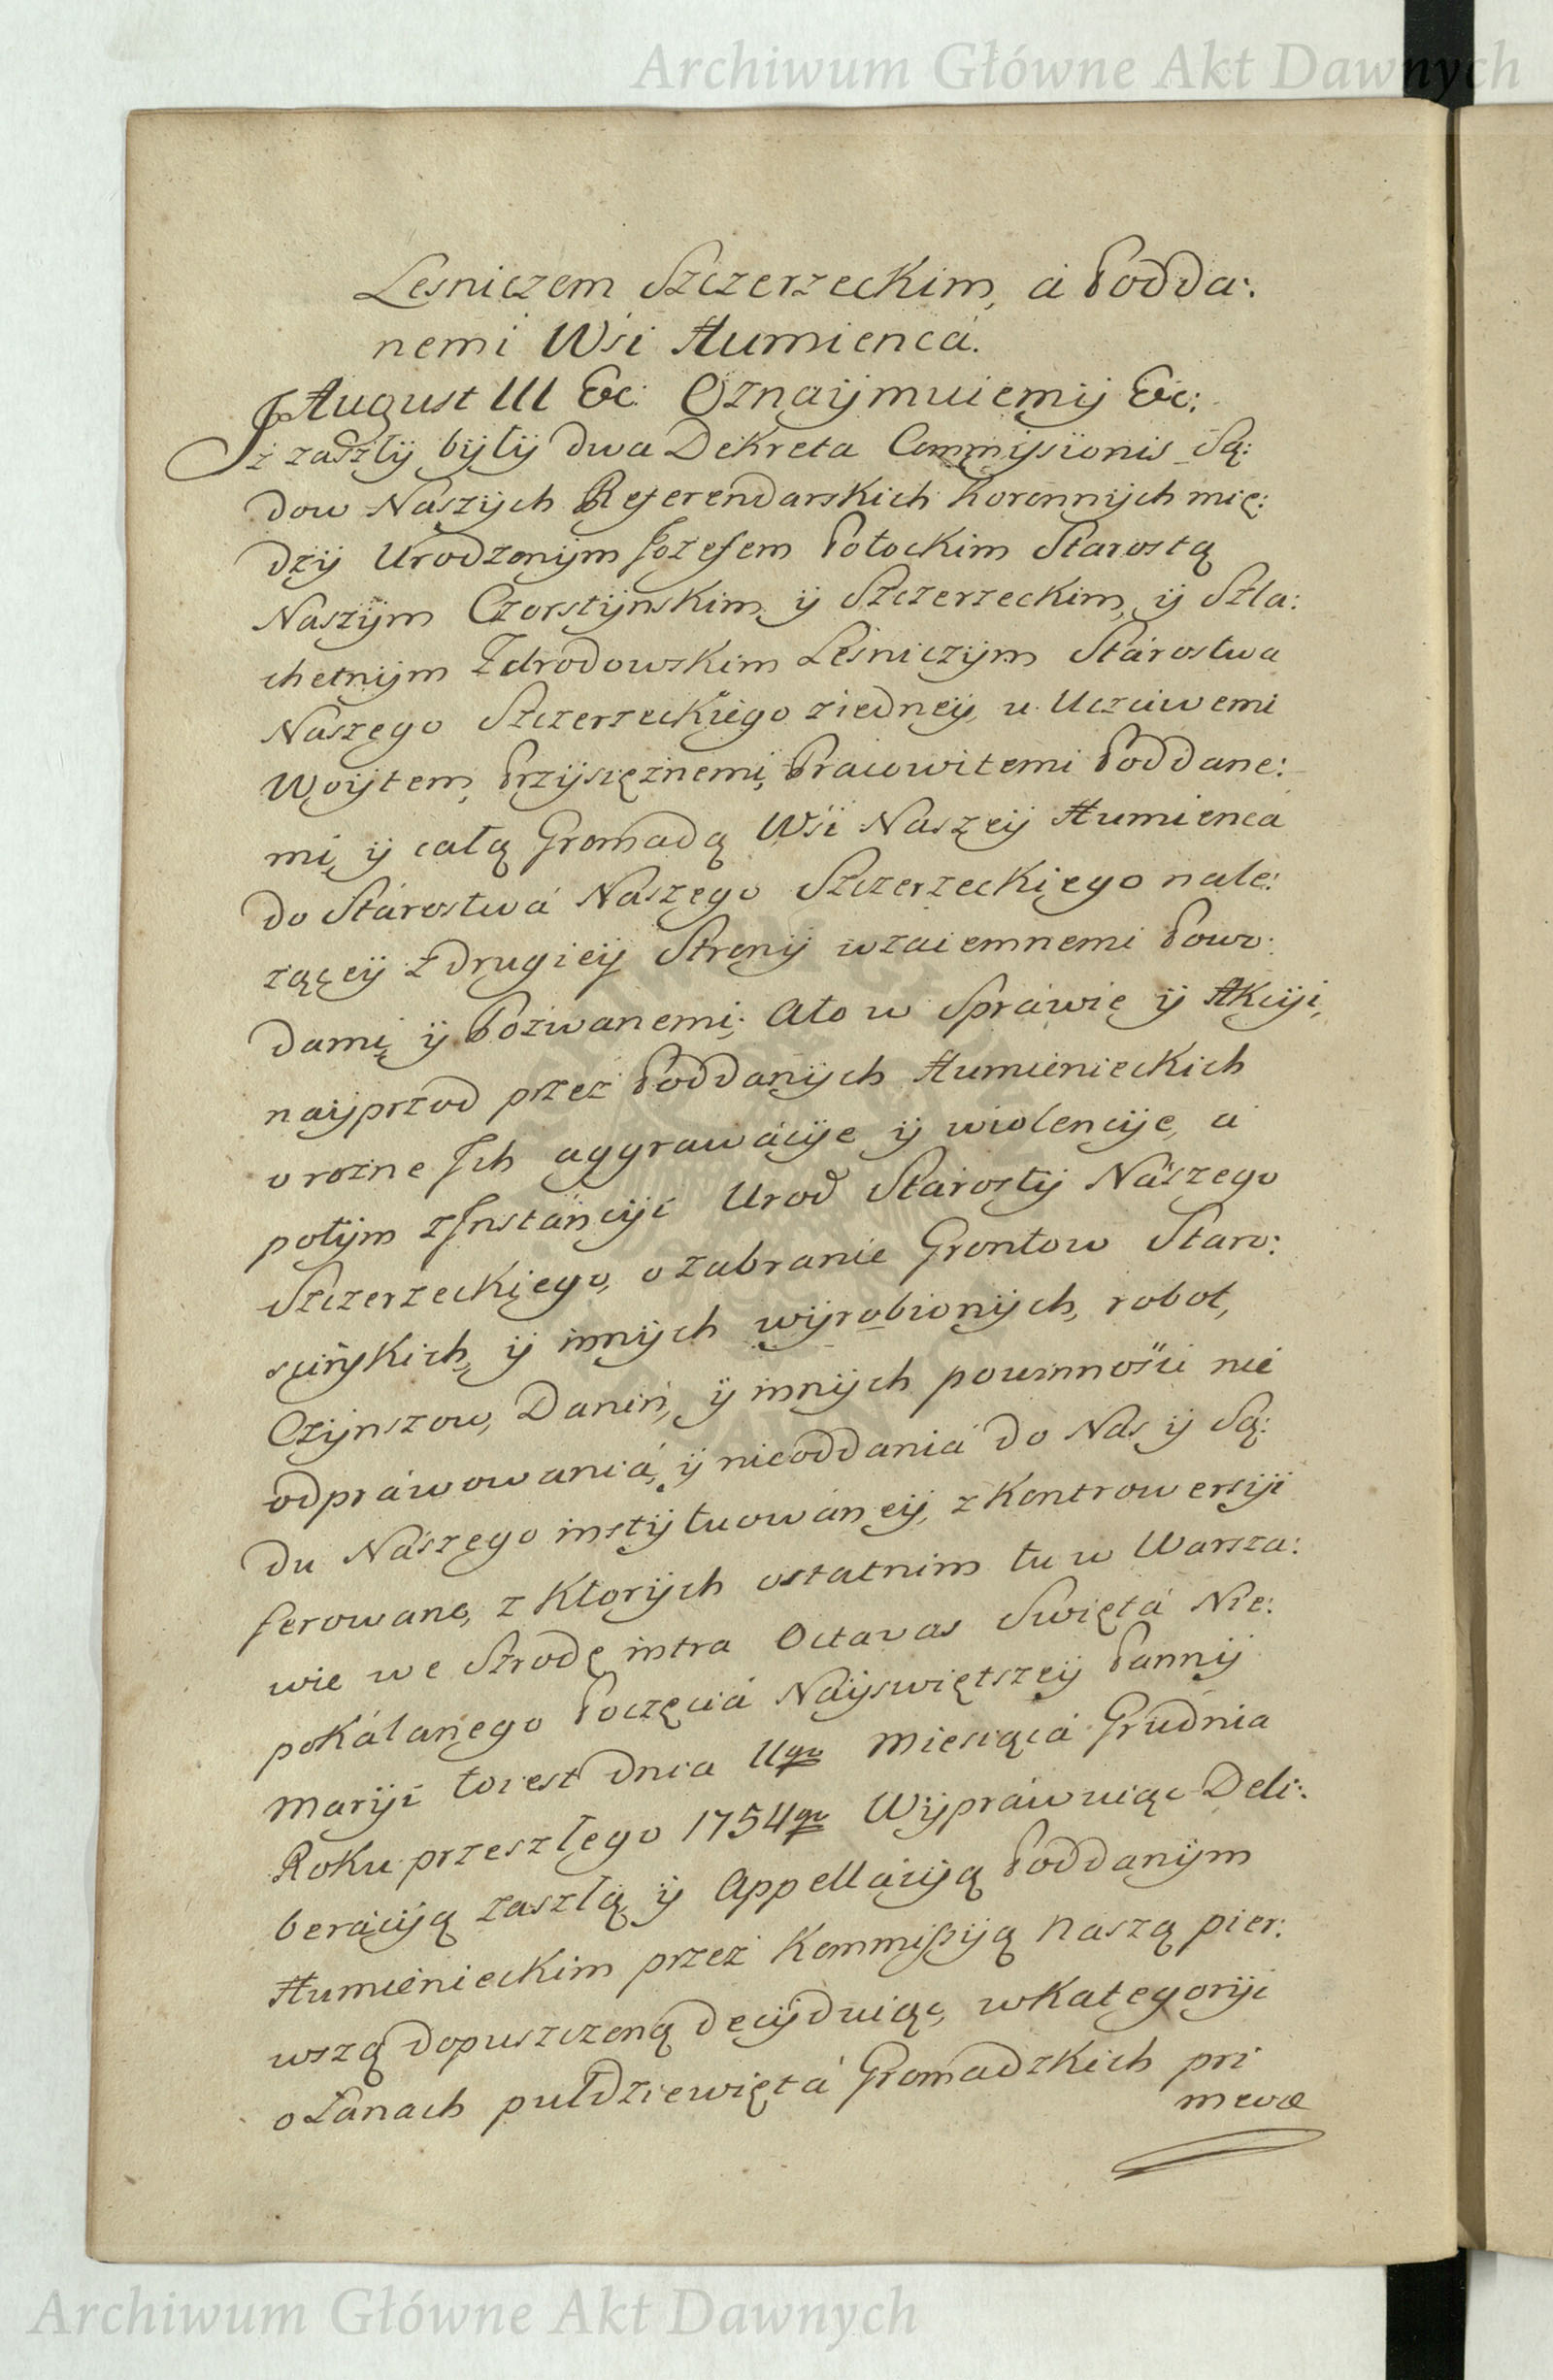 Archiwum Główne Akt Dawnych
Lesniczem Szczerzeckim, á Podda:
nemi Wśi Humiencá.
August III &c: Oznaÿmuiemÿ &c:
Iż zaszłÿ bÿłÿ dwa Dekreta Commissionis Są:
dow Naszÿch Referendarskich Koronnÿch mię:
dzÿ Urodzonÿm Jozefem Potockim Starostą
Naszÿm Czorstÿnskim ÿ Szczerzeckim, ÿ Szla:
chetnÿm Zdrodowskim Leśniczÿm Stárostwa
Naszego Szczerzeckiego ziedneÿ, a Uczciwemi
Woÿtem, Przÿsiężnemi, Pracowitemi Poddane:
mi, ÿ całą Gromadą Wśi Naszeÿ Humienca
do Stárostwá Naszego Szczerzeckiego nale:
żąceÿ z drugieÿ Stronÿ wzaiemnemi Powo:
dami ÿ Pozwanemi; Ato w Spráwie ÿ Akcÿi,
naÿprzod przez Poddanÿch Humienieckich
o rożne Ich aggrawácÿe ÿ wiolencÿe, á
potÿm z Instáncÿi Urod Stárostÿ Nászego
Szczerzeckiego, o zabranie Grontow Staro:
scińskich, ÿ innÿch wÿrobionÿch, robot,
Czÿnszow, Danin, ÿ innÿch powinnośći nie
odpráwowaniá, ÿ nieoddaniá do Nas ÿ Są:
du Nászego instÿtuowáneÿ, z Kontrowersÿi
ferowane, z Ktorÿch ostatnim tu w Warsza:
wie we Srzodę intra Octavas Swiętá Nie:
pokálanego Poczęciá Naÿswiętszeÿ Pannÿ
Marÿi toiest dnia 11go Miesiącá Grudnia
Roku przeszłego 1754go Wÿpráwuiąc Deli:
berácÿą zaszłą, ÿ Appellácÿą Poddanÿm
Humienieckim przez Kommissÿą Naszą pier:
wszą dopuszczoną decÿduiąc, w Kategorÿi
o Łanach pułdziewiętá Gromadzkich pri
mevæ
Archiwum Główne Akt Dawnych